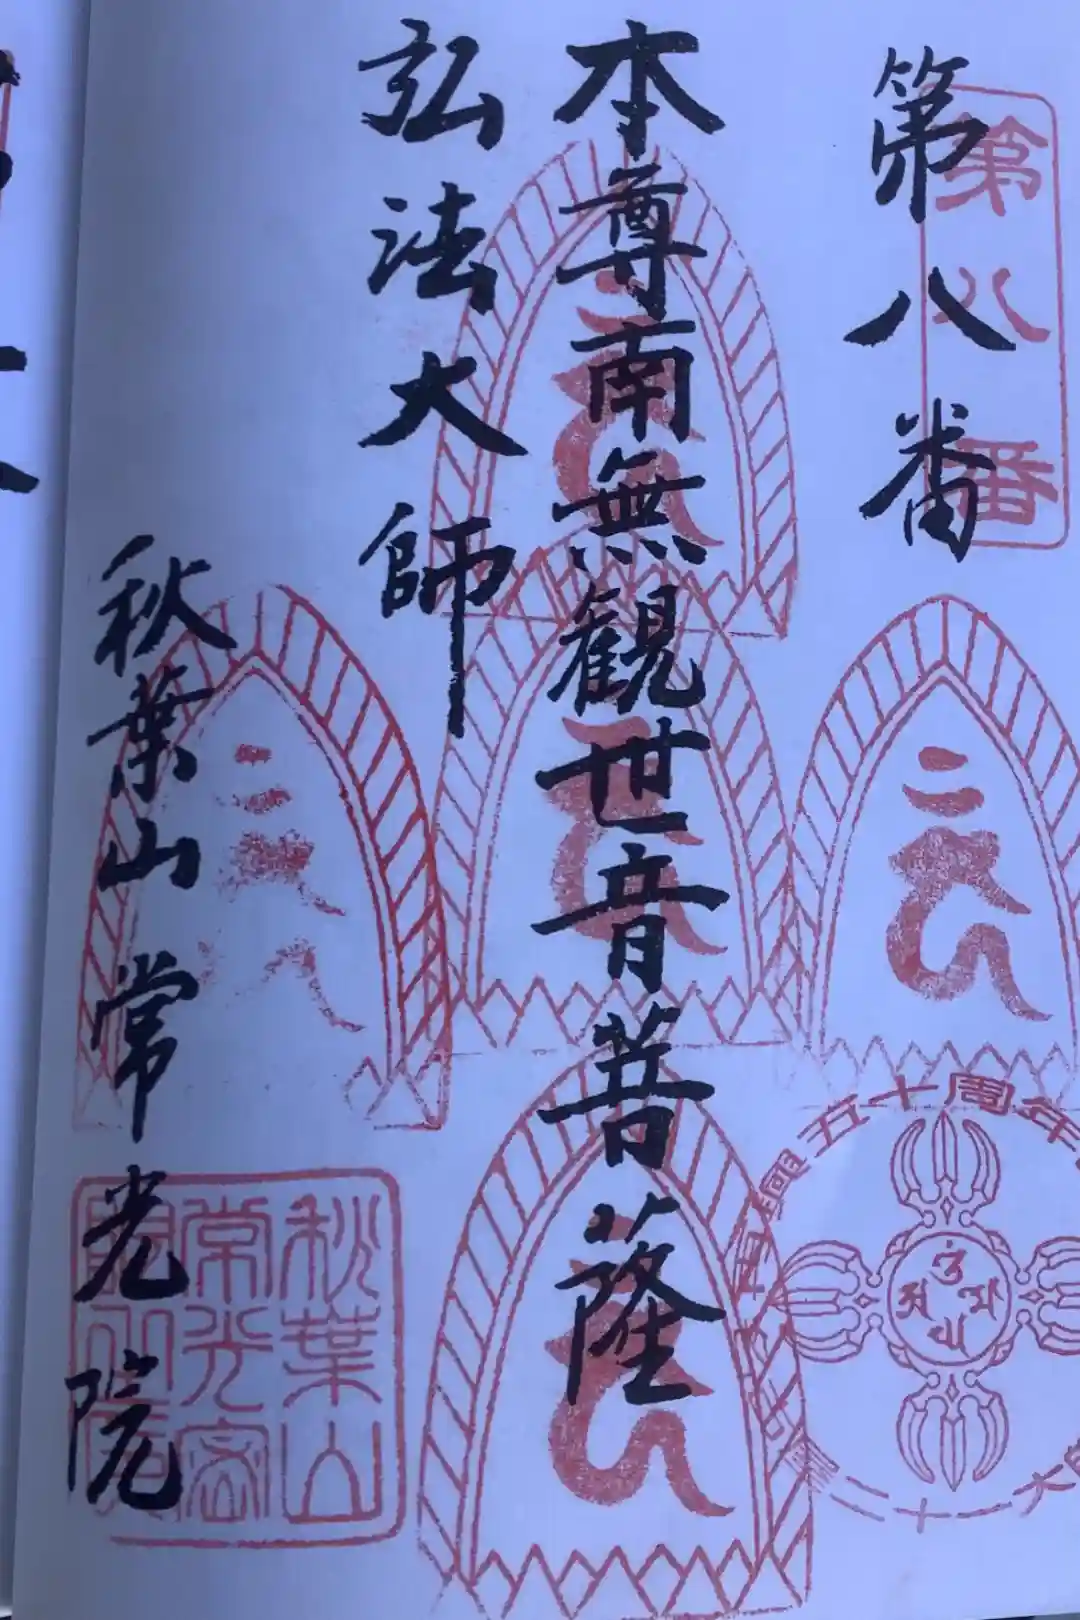 第八番
第八番
本尊南無観世音菩薩
弘法大師
秋葉山常光院
五十周年
秋葉山